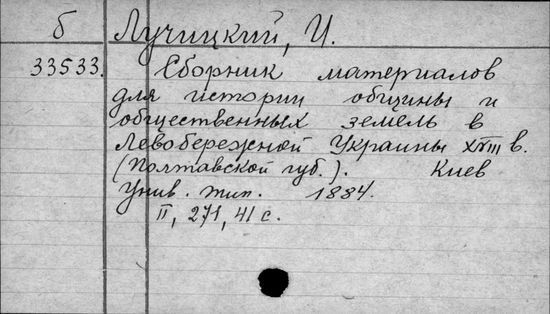 б Лучицкий, И.
33533. Сборник материалов
для истории общины и
общественных земель в
Левобережной Украины XVIII в.
(Полтавской губ.). Киев
Унив. тип. 1884.
II, 271, 41 с.